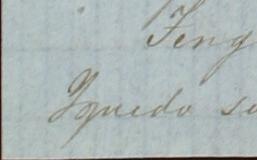 Teng
Y quedo su